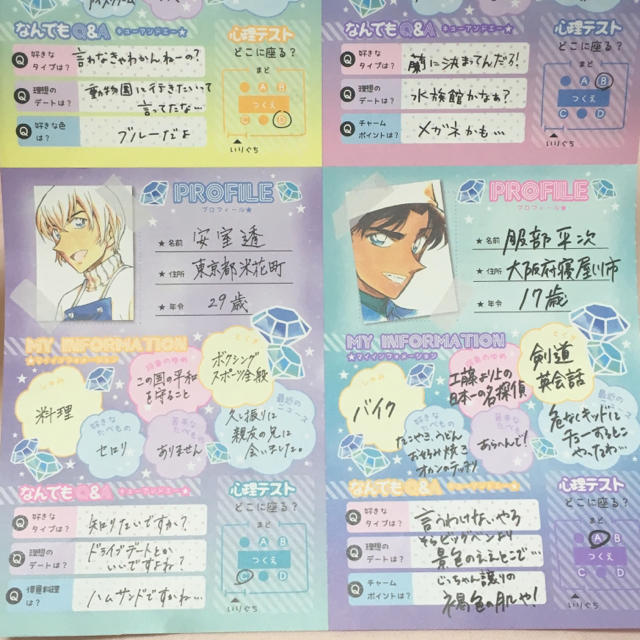 なんでもQ&A キューアンドエー★
心理テスト
どこに座る?
Q 好きなタイプは? 言わなきゃわかんねーの?
Q 理想のデートは? 動物園に行きたいって言ってたな…
Q 好きな色は? ブルーだよ
まど
A B
つくえ
C D
いりぐち
なんでもQ&A キューアンドエー★
心理テスト
どこに座る?
Q 好きなタイプは? 蘭に決まってんだろ!
Q 理想のデートは? 水族館かなぁ?
Q チャームポイントは? メガネかも…
まど
A B
つくえ
C D
いりぐち
PROFILE
プロフィール★
★名前 安室透
★住所 東京都米花町
★年令 29歳
MY INFORMATION
★マイインフォメーション
しゅみ
料理
将来のゆめ
この国の平和を守ること
とくぎ
ボクシング
スポーツ全般
好きなたべもの
セロリ
苦手なたべもの
ありません
最近のニュース
久し振りに
親友の兄に
会いました。
なんでもQ&A キューアンドエー★
Q 好きなタイプは? 知りたいですか?
Q 理想のデートは? ドライブデートとかいいですよね?
Q 得意料理は? ハムサンドですかね…
心理テスト
どこに座る?
まど
A B
つくえ
C D
いりぐち
PROFILE
プロフィール★
★名前 服部平次
★住所 大阪府寝屋川市
★年令 17歳
MY INFORMATION
★マイインフォメーション
しゅみ
バイク
将来のゆめ
工藤より上の
日本一の名探偵
とくぎ
剣道
英会話
好きなたべもの
たこやき、うどん
お好み焼き
オカンのテッチリ
苦手なたべもの
あらへんで!
最近のニュース
危なくキッドに
チューするとこ
やったわ…
なんでもQ&A キューアンドエー★
Q 好きなタイプは? 言うわけないやろ
Q 理想のデートは? そらビッグベンより景色のええとこで…
Q チャームポイントは? じっちゃん譲りの褐色の肌や!
心理テスト
どこに座る?
まど
A B
つくえ
C D
いりぐち